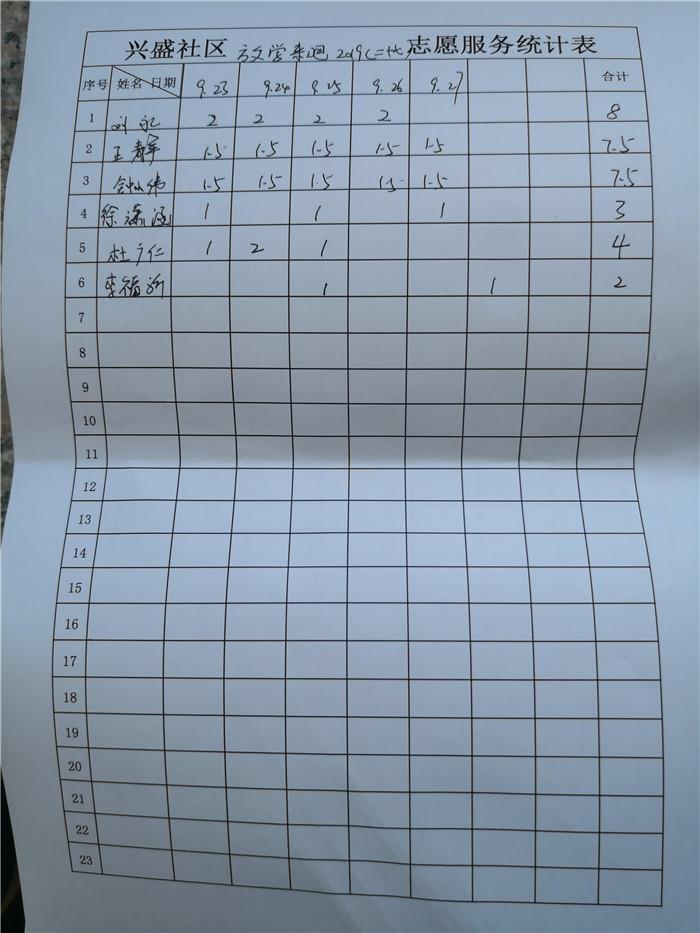 兴盛社区 志愿服务统计表
序号 姓名 日期 9.23 9.24 9.25 9.26 9.27 合计
1 2 2 2 2 8
2 王静 1.5 1.5 1.5 1.5 1.5 7.5
3 1.5 1.5 1.5 1.5 1.5 7.5
4 徐潇涵 1 1 1 3
5 杜广仁 1 2 1 4
6 李福新 1 1 2
7
8
9
10
11
12
13
14
15
16
17
18
19
20
21
22
23